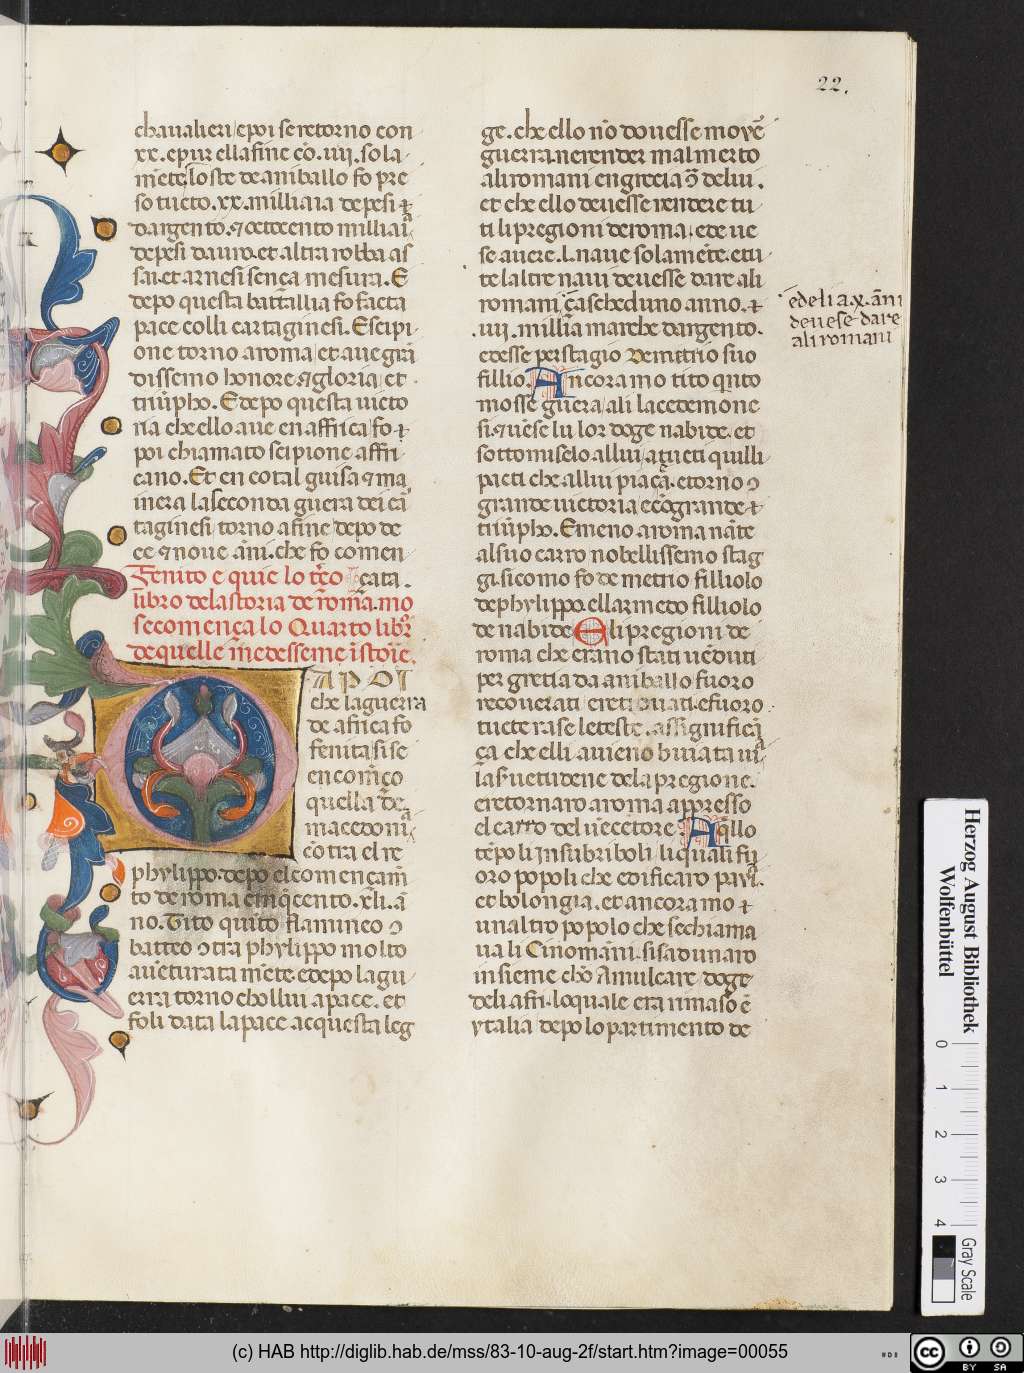 22.
chaualieri epoi se retorno con
xx. epur ella fine cō. iiij. sola
mēte lo ste de aniballo fo pre
so tucto. xx. milliaia de pesi ⁊
dargento. ⁊ octocento milliaī
de pesi dauro. et altra robba as
sai. et arnesi sença mesura. E
depo questa battallia fo facta
pace colli cartaginesi. Escipi
one torno a roma et aue grā
dissemo honore ⁊ gloria et
triūpho. E depo questa uicto
ria che ello aue en affrica fo ⁊
poi chiamato scipione affri
cano. Et en cotal guisa ⁊ ma
inera la seconda guera dei cā
taginesi torno a fine depo de
ce ⁊ noue āni. che fo comen
Fenito e quie lo t̄co çata.
libro dela storia de rōma. mo
se comença lo Quarto libr̄
de quelle m̄edesseme istorie.
DAPOI
che la guerra
de africa fo
fenita si se
en comēço
quella de
macedoniā
cōtra el re
phylippo. depo el començam̄
to de roma cinq̄cento. xli. ā
no. Tito quīto flamineo ↄ
batteo ↄtra phylippo molto
auēturata mēte. e depo la gu
erra torno cħollui a pace. et
foli data la pace a questa leg
ge. che ello nō douesse moyē
guerra. ne render mal merto
ali romani en grecia ↄ̄ de lui.
et che ello deuesse rendere tu
ti li pregioni de roma. e deue
se auere. L. naue solamēte. e tu
te l altre naui deuesse dare ali
romani çascheduno anno. ⁊
.iiij. milliā marche dargento.
e desse per stagio Demetrio suo
fillio. Ancora mo tito qn̄to
mosse guera ali lacedemone
si. ⁊ uēse lu lor doge nabide. et
sottomiselo allui a tucti quilli
pacti che allui piaçā. e torno ↄ
grande uictoria e cōgrande ⁊
triūpho. E meno a roma nāte
al suo carro nobellissemo stag
gi. si como fo demetrio filliolo
de phylippo. ell armedo filliolo
de nabide E li pregioni de
roma che erano stati uēduti
per grecia da aniballo fuoro
recouerati e retrouati. e fuoro
tucte rase le teste. assignificā
ça che elli auieno biuiata uiā
la s̄uetudene de la pregione.
e retornaro a roma appresso
el carro del uēcetore. A q̄llo
tēpo li Insubri boli li quali fu
oro popoli che edificaro pauiā.
et bolongia. et ancora mo ⁊
un altro popolo che se chiama
ua li Cinomāni. si sadunaro
insieme chō Amulcare doge
deli afri. lo quale era rimaso ē
ytalia depo lo partimento de
e deli a. x. āni
deuese dare
ali romani
Herzog August Bibliothek
Wolfenbüttel
0 1 2 3 4
Gray Scale
(c) HAB http://diglib.hab.de/mss/83-10-aug-2f/start.htm?image=00055
cc BY SA